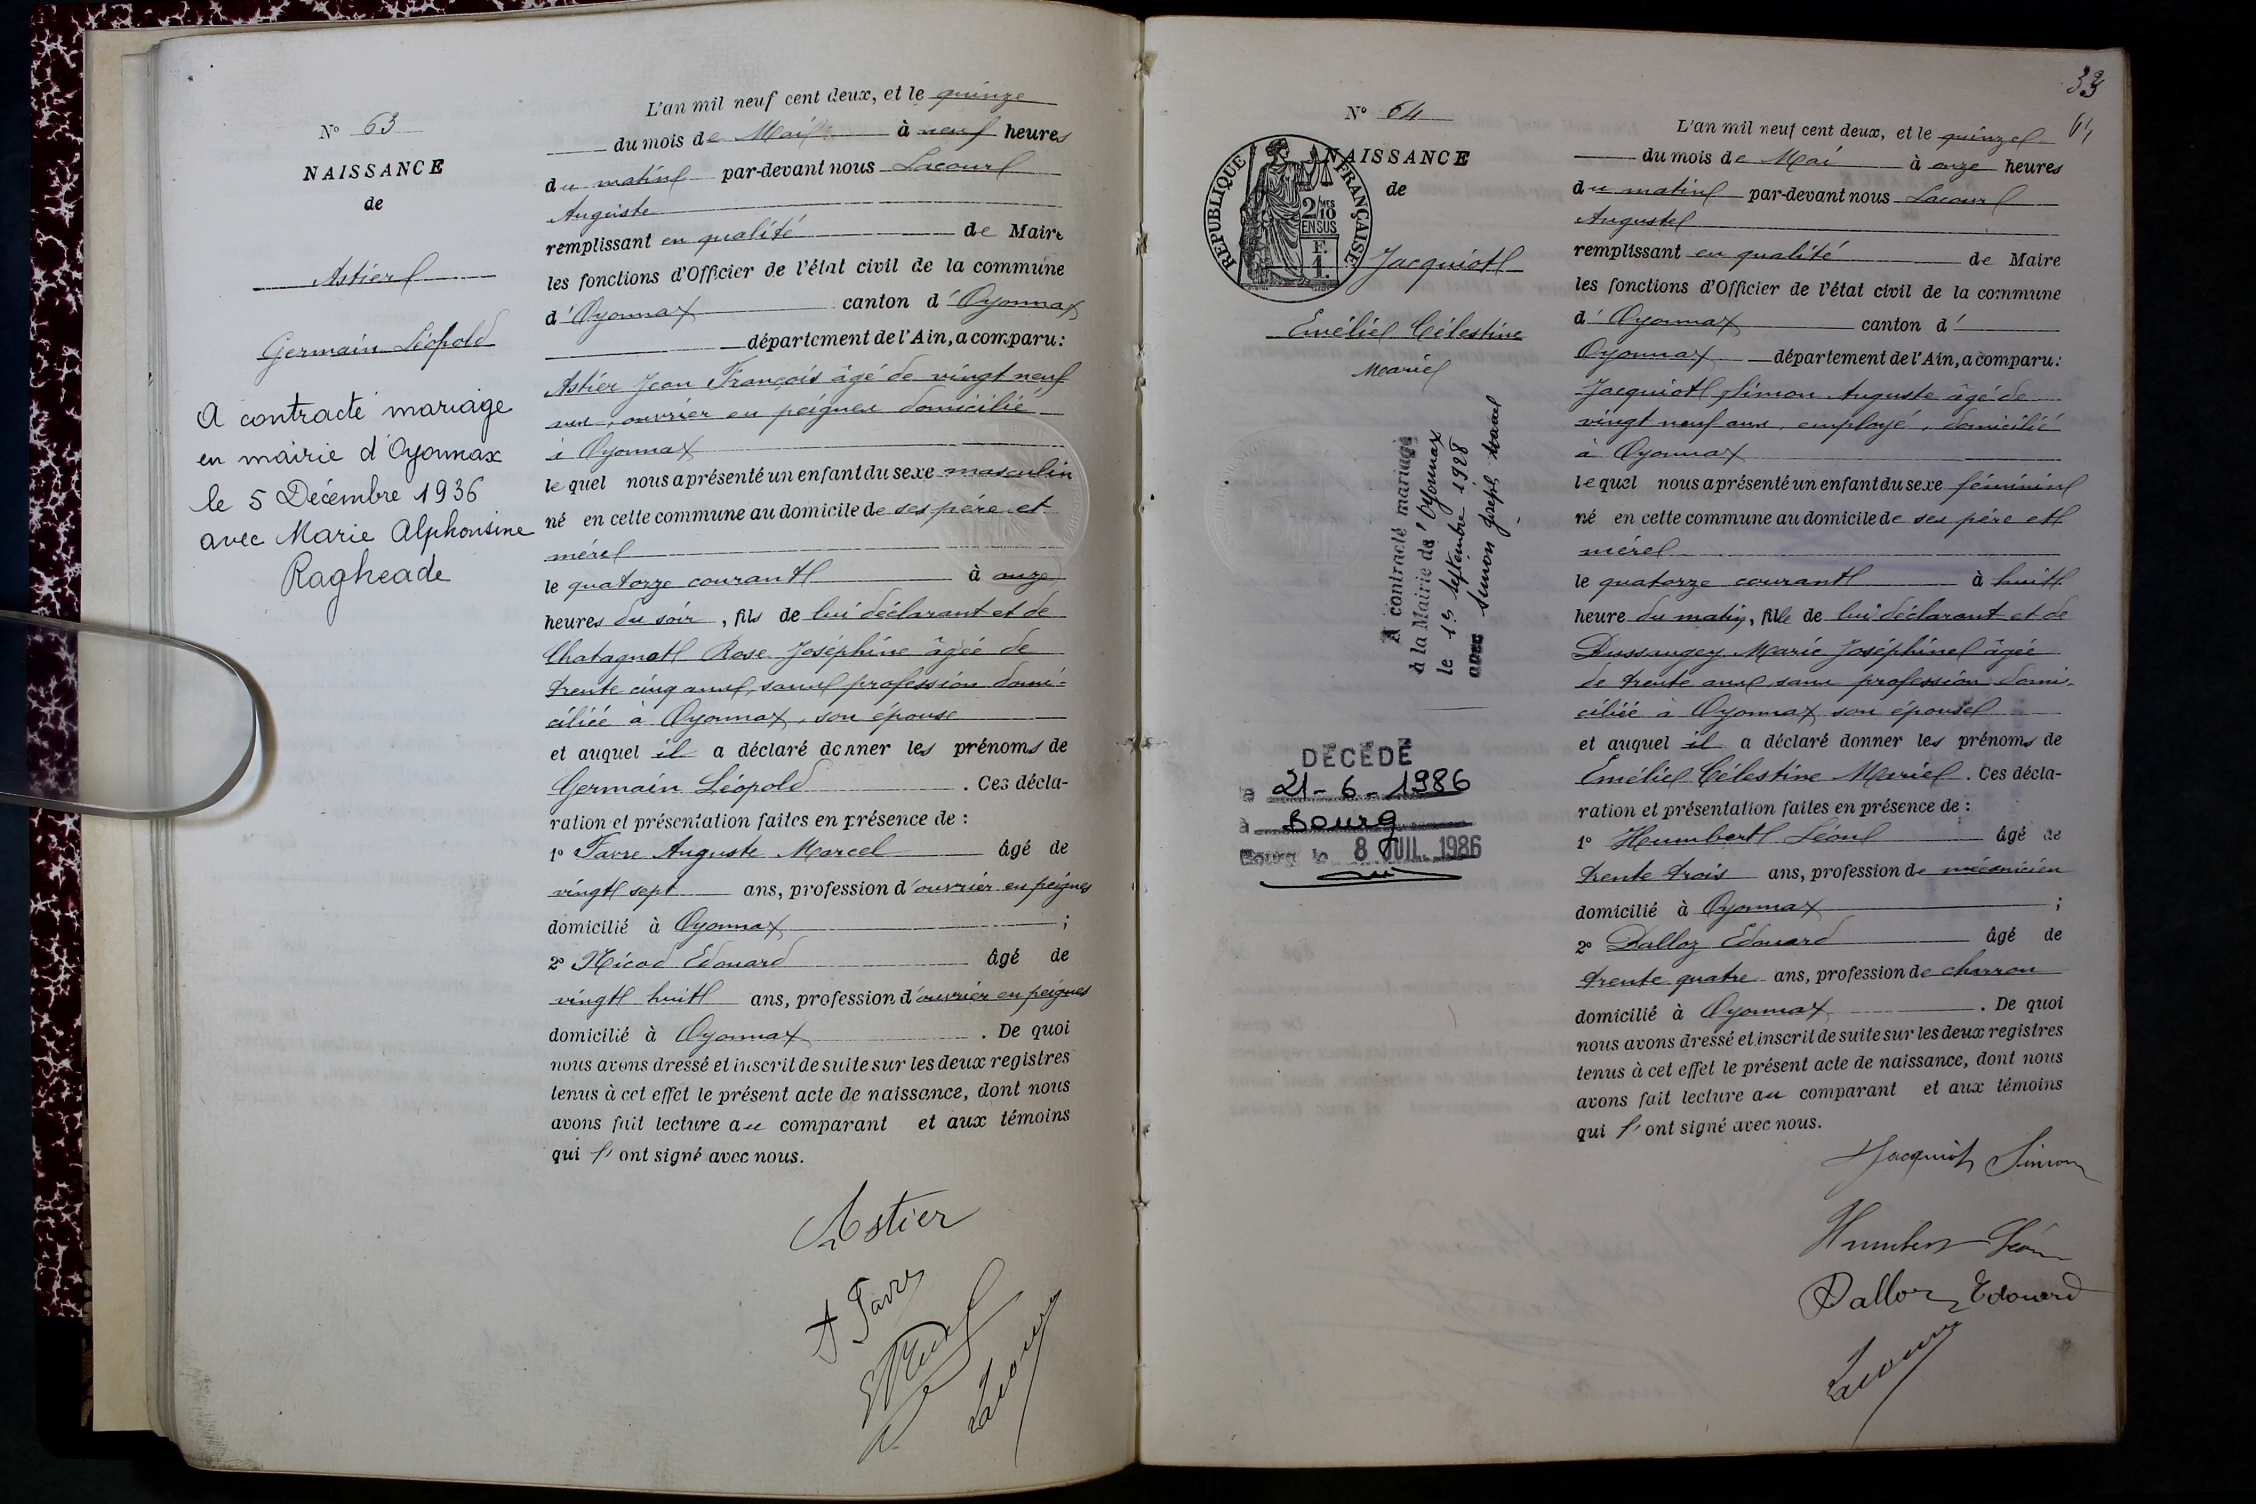 N° 63
NAISSANCE
de
Astier
Germain Léopold
A contracté mariage
en mairie d'Oyonnax
le 5 Décembre 1936
avec Marie Alphonsine
Ragheade
L'an mil neuf cent deux, et le quinze
du mois de Mai à neuf heures
du matin par-devant nous Lacour
Auguste
remplissant en qualité de Maire
les fonctions d'Officier de l'état civil de la commune
d'Oyonnax canton d'Oyonnax
département de l'Ain, a comparu :
Astier Jean François âgé de vingt neuf
ans, ouvrier en peignes domicilié
à Oyonnax
lequel nous a présenté un enfant du sexe masculin
né en cette commune au domicile de ses père et
mère
le quatorze courant à onze
heures du soir, fils de lui déclarant et de
Chatagnat Rose Joséphine âgée de
trente cinq ans, sans profession domi-
ciliée à Oyonnax, son épouse
et auquel il a déclaré donner les prénoms de
Germain Léopold . Ces décla-
ration et présentation faites en présence de :
1° Favre Auguste Marcel âgé de
vingt sept ans, profession d'ouvrier en peignes
domicilié à Oyonnax ;
2° Nicod Edouard âgé de
vingt huit ans, profession d'ouvrier en peignes
domicilié à Oyonnax . De quoi
nous avons dressé et inscrit de suite sur les deux registres
tenus à cet effet le présent acte de naissance, dont nous
avons fait lecture au comparant et aux témoins
qui l'ont signé avec nous.
Astier
A Favre
Lacour
33
64
N° 64
NAISSANCE
de
RÉPUBLIQUE FRANÇAISE
2/10 MES
EN SUS
F.
1.
Jacquiot
Emélie Célestine
Marie
A contracté mariage
à la Mairie de d'Oyonnax
le 15 septembre 1928
avec Simon Joseph Marcel
DÉCÉDÉ
le 21-6-1986
à Bourg
Bourg le 8 JUIL. 1986
L'an mil neuf cent deux, et le quinze
du mois de Mai à onze heures
du matin par-devant nous Lacour
Auguste
remplissant en qualité de Maire
les fonctions d'Officier de l'état civil de la commune
d'Oyonnax canton d'
Oyonnax département de l'Ain, a comparu :
Jacquiot Simon Auguste âgé de
vingt neuf ans, employé, domicilié
à Oyonnax
lequel nous a présenté un enfant du sexe féminin
né en cette commune au domicile de ses père et
mère
le quatorze courant à huit
heure du matin, fille de lui déclarant et de
Dussaugey Marie Joséphine âgée
de trente ans sans profession domi-
ciliée à Oyonnax son épouse
et auquel il a déclaré donner les prénoms de
Emélie Célestine Marie . Ces décla-
ration et présentation faites en présence de :
1° Humbert Léon âgé de
trente trois ans, profession de mécanicien
domicilié à Oyonnax ;
2° Dalloz Edouard âgé de
trente quatre ans, profession de charron
domicilié à Oyonnax . De quoi
nous avons dressé et inscrit de suite sur les deux registres
tenus à cet effet le présent acte de naissance, dont nous
avons fait lecture au comparant et aux témoins
qui l'ont signé avec nous.
Jacquiot Simon
Humbert Léon
Dalloz Edouard
Lacour